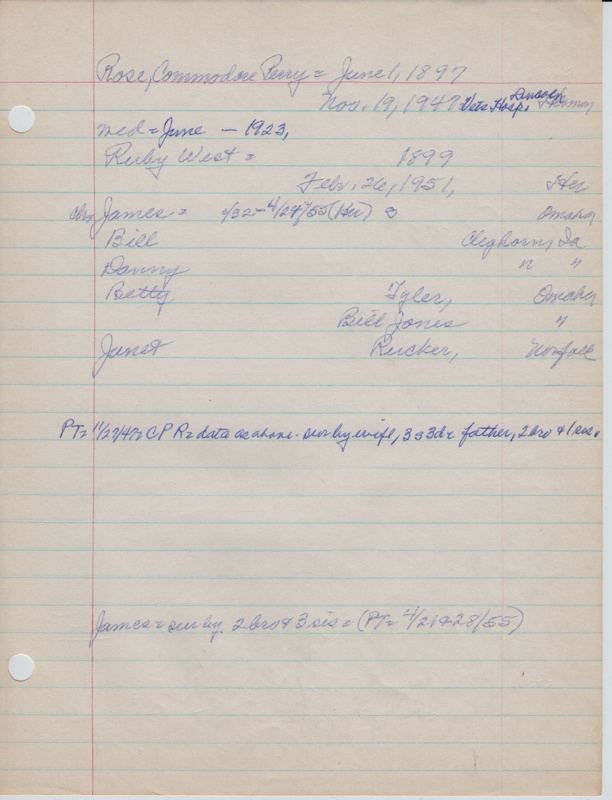 Rose, Commodore Perry = June 1, 1897
Nov. 19, 1947 Vets Hosp. Lincoln Herman
med = June - 1923,
Ruby West = 1899
Febr. 26, 1951, Her
Chr James = 1/32 - 4/24/55 (Her) 3 Omaha
Bill Cleghorn, Ia
Danny " "
Betty Tyler, Omaha
Bill Jones "
Janet Rucker, Norfolk
PT = 11/27/47 = C P R = data as above - sur by wife, 3 s 3 d = father, 2 bro + 1 sis.
James = sur by 2 bro + 3 sis = (PT = 4/21 & 28/55)